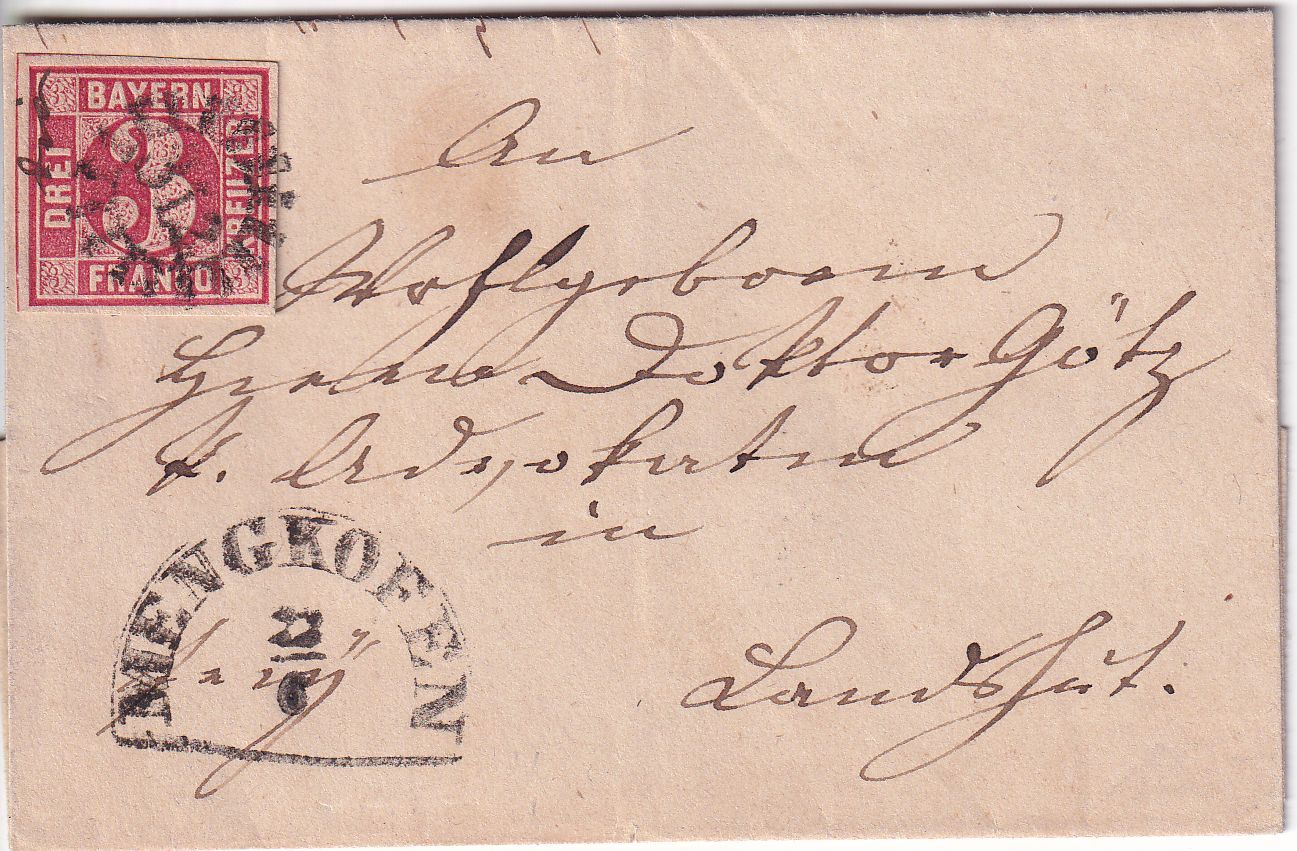 BAYERN
DREI
KREUZER
FRANCO
3
An
Wohlgeborn
Herrn Doktor Götz
k. Advokaten
in
Landshut.
MENGKOFEN